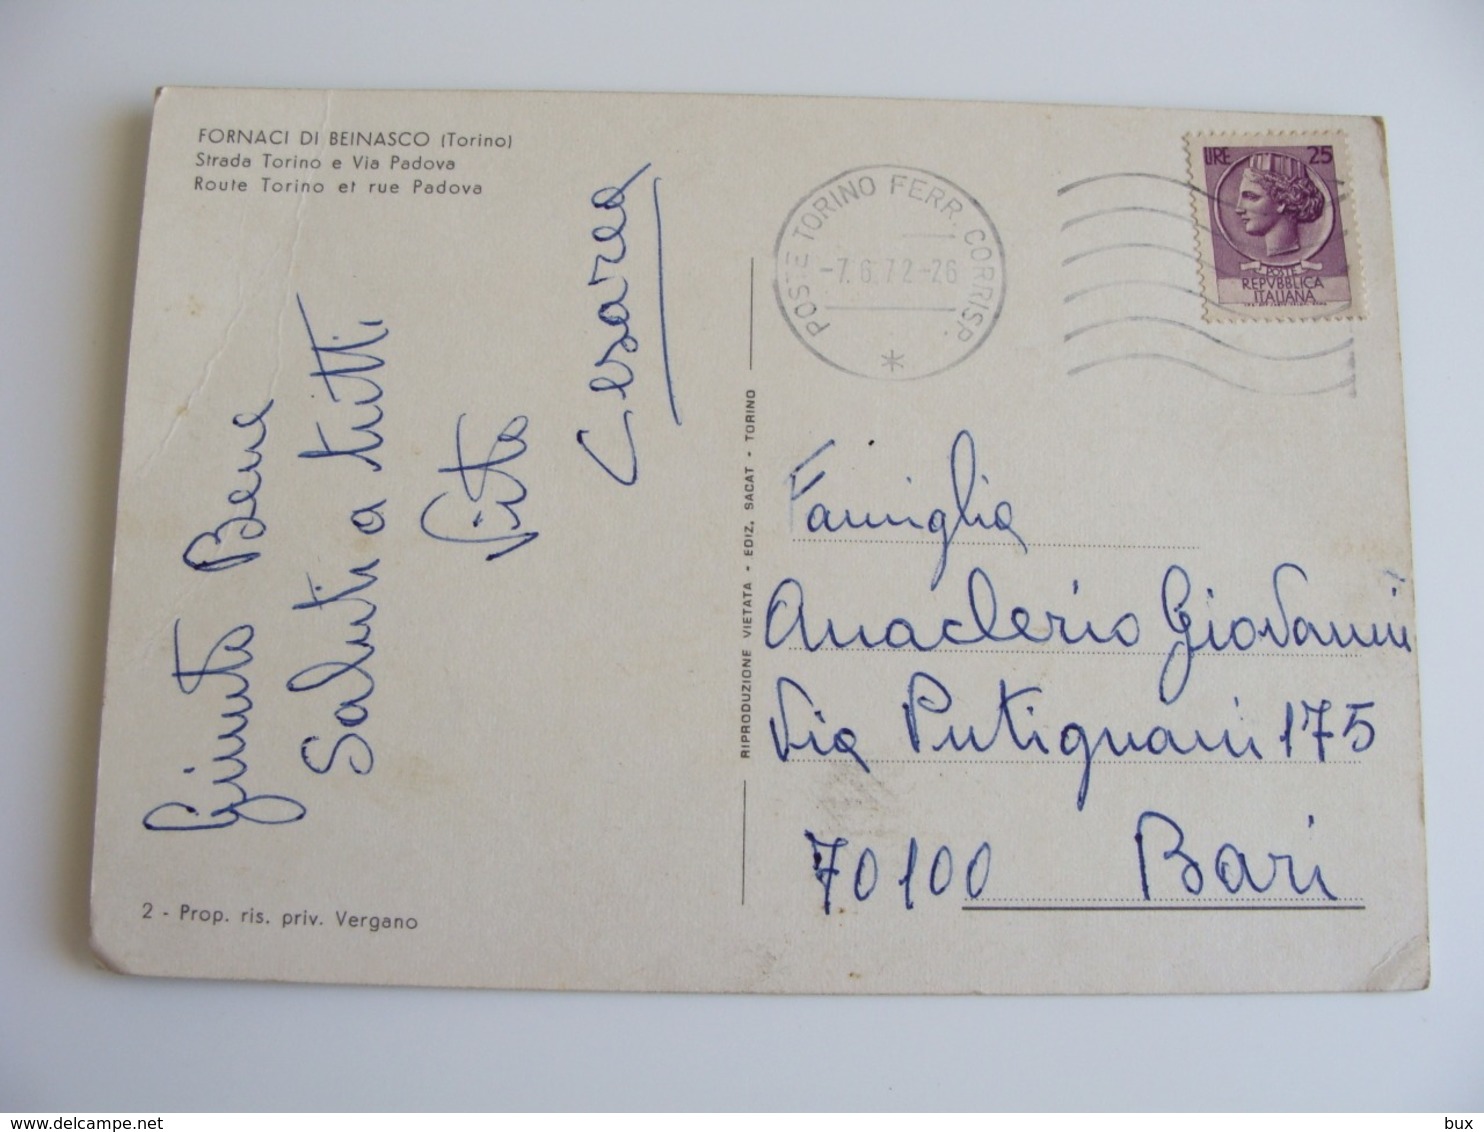 FORNACI DI BEINASCO (Torino)
Strada Torino e Via Padova
Route Torino et rue Padova
Giunto Bene
Saluti a tutti
Vito
Cesarea
2 - Prop. ris. priv. Vergano
RIPRODUZIONE VIETATA - EDIZ. SACAT - TORINO
POSTE TORINO FERR. CORRISP.
-7.6.72-26
LIRE 25
POSTE
REPVBBLICA
ITALIANA
Famiglia
Anaclerio Giovanni
Via Putignani 175
70100 Bari
delcampe.net
bux